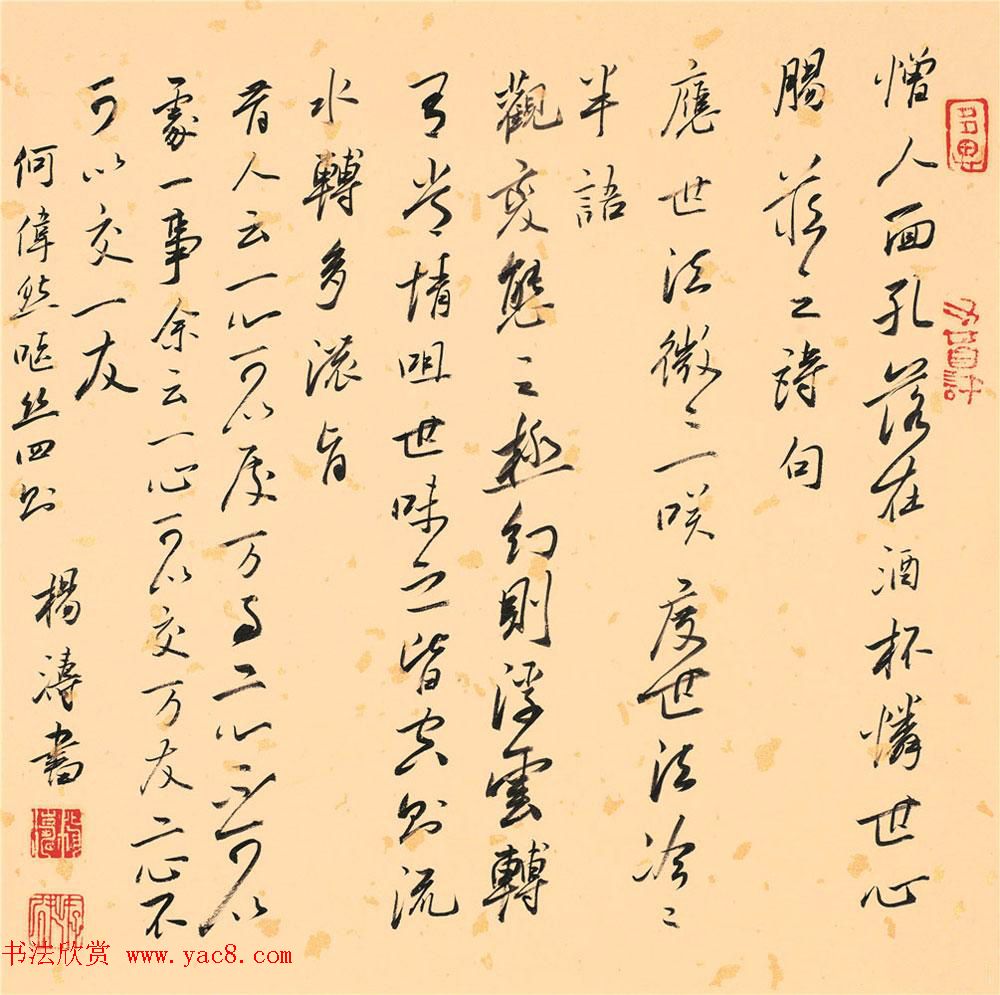 憎人面孔落在酒杯憐世心
腸藏之詩句
應世法微〻一咲度世法冷〻
半語
觀變態之極幻則浮雲轉
有常情咀世味之皆空則流
水轉多濃旨
昔人云一心可以處万事二心不可以
處一事余云一心可以交万友二心不
可以交一友
何偉然嘔丝四則 楊濤書
书法欣赏 www.yac8.com